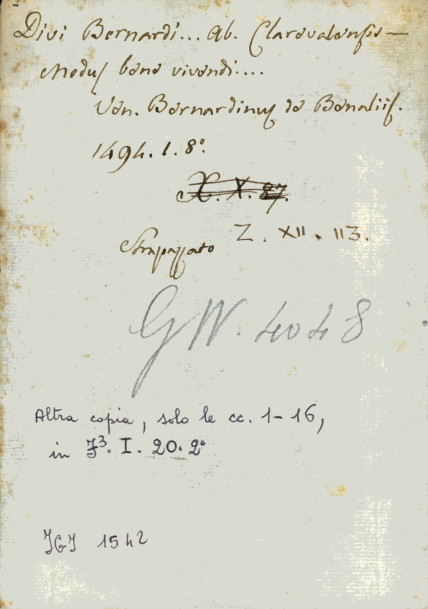 Divi Bernardi... Ab. Clarevalensis —
Modus bene vivendi....
Ven. Bernardinus de Benaliis.
1494. l. 8°.
X. X. 87.
Z. XII. 113.
Strapazzato
GW. 4048
Altra copia, solo le cc. 1-16,
in I. 20. 2°
IGI 1542